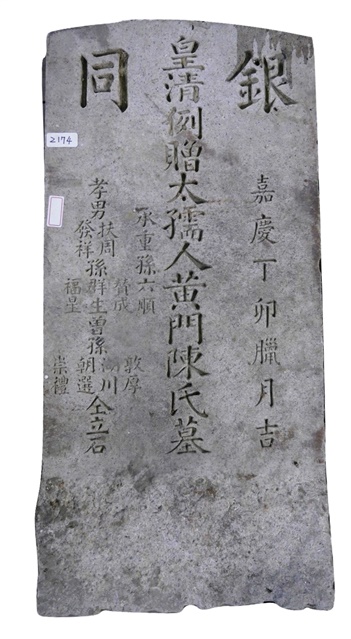 銀同
嘉慶丁卯臘月吉
皇清例贈太孺人黃門陳氏墓
承重孫六順
孝男扶周
發祥
孫贊成
群生
福星
曾孫敦厚
川
朝選
崇禮
仝立石
2174